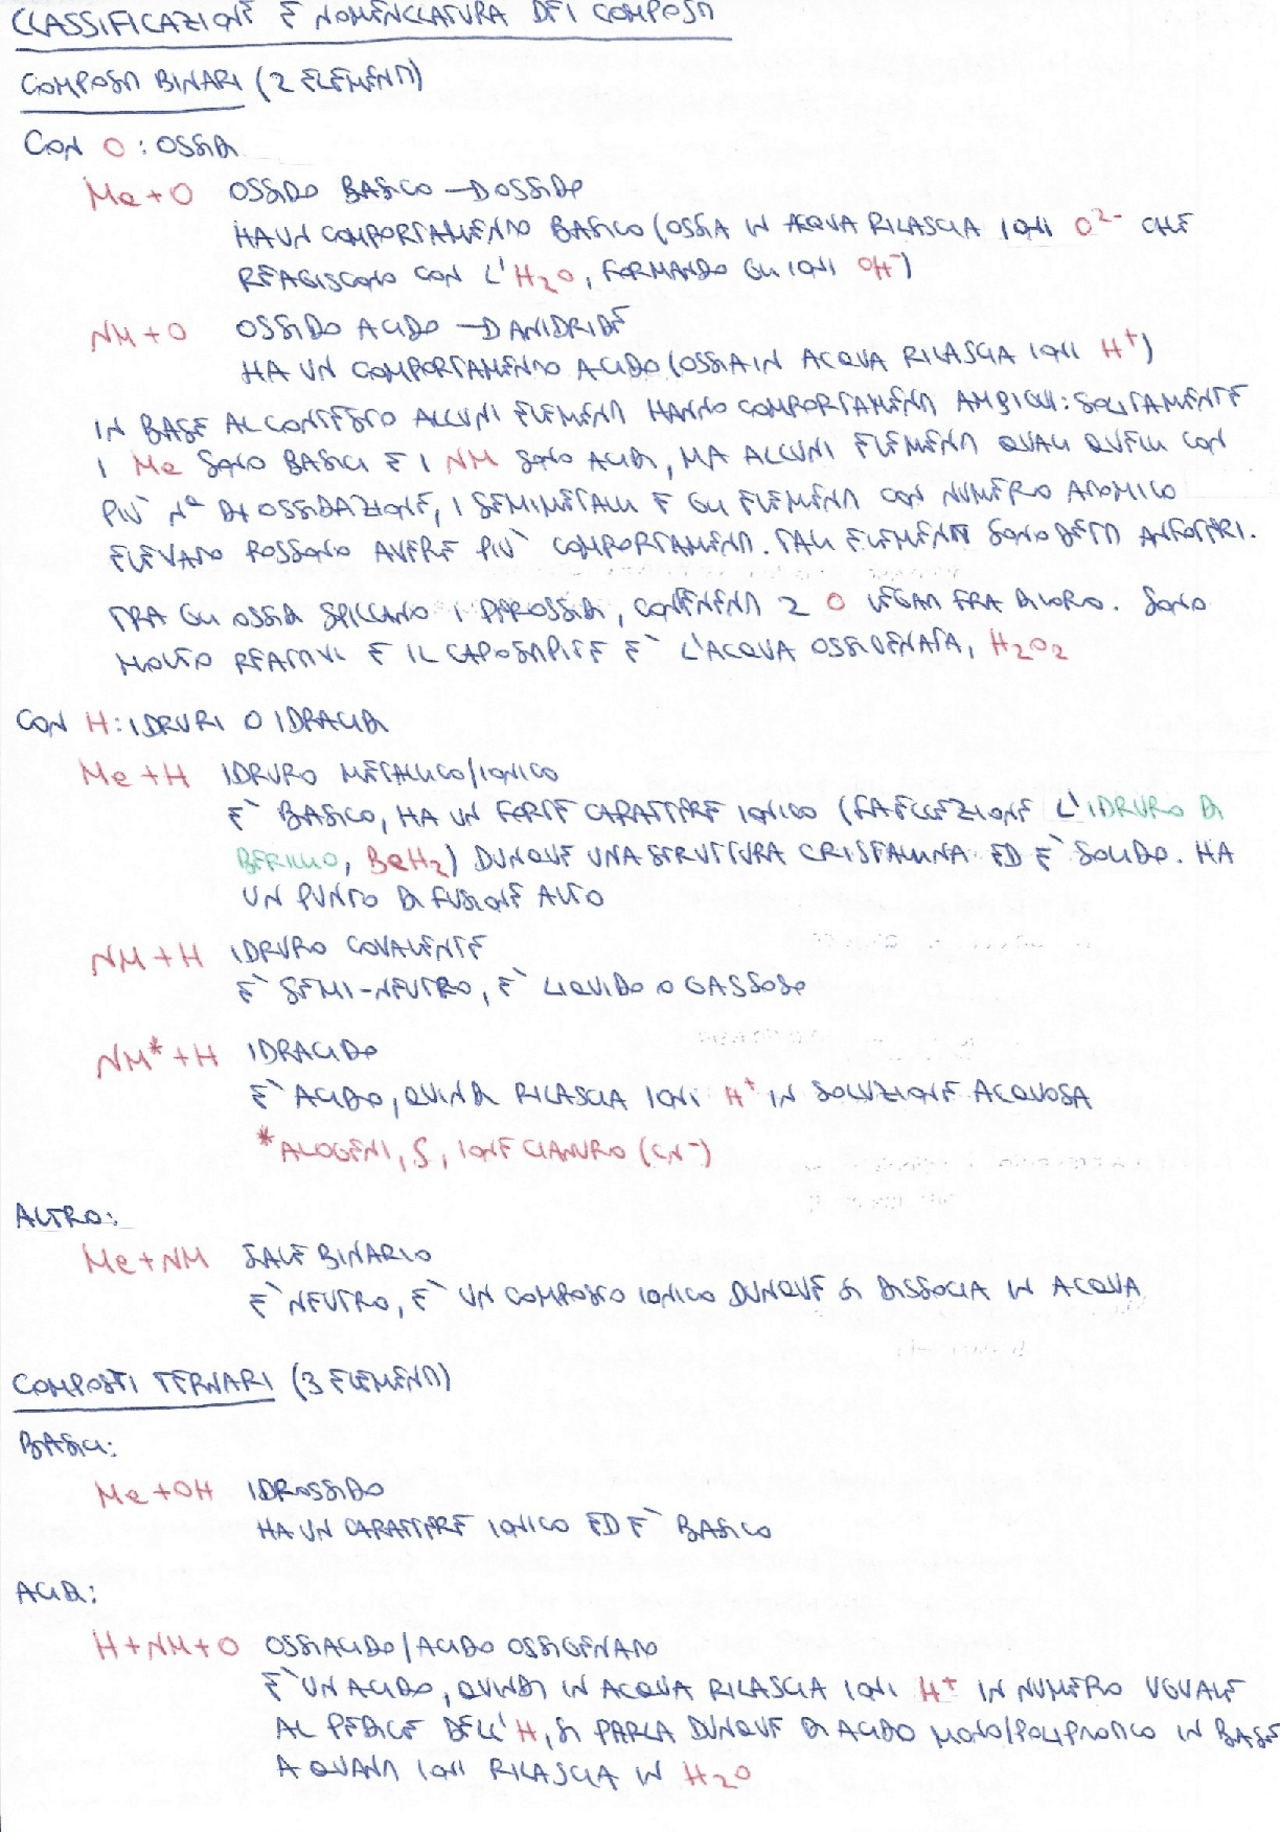 CLASSIFICAZIONE E NOMENCLATURA DEI COMPOSTI
COMPOSTI BINARI (2 ELEMENTI)
CON O: OSSIDI
Me+O OSSIDO BASICO → OSSIDO
HA UN COMPORTAMENTO BASICO (OSSIA IN ACQUA RILASCIA IONI O²⁻ CHE
REAGISCONO CON L'H₂O, FORMANDO GLI IONI OH⁻)
NM+O OSSIDO ACIDO → ANIDRIDE
HA UN COMPORTAMENTO ACIDO (OSSIA IN ACQUA RILASCIA IONI H⁺)
IN BASE AL CONTESTO ALCUNI ELEMENTI HANNO COMPORTAMENTI AMBIGUI: SOLITAMENTE
I Me SONO BASICI E I NM SONO ACIDI, MA ALCUNI ELEMENTI QUALI QUELLI CON
PIÙ Nº DI OSSIDAZIONE, I SEMIMETALLI E GLI ELEMENTI CON NUMERO ATOMICO
ELEVATO POSSONO AVERE PIÙ COMPORTAMENTI. TALI ELEMENTI SONO DETTI ANFOTERI.
TRA GLI OSSIDI SPICCANO I PEROSSIDI, CONTENENTI 2 O LEGATI FRA DI LORO. SONO
MOLTO REATTIVI E IL CAPOSTIPITE E` L'ACQUA OSSIGENATA, H₂O₂
CON H: IDRURI O IDRACIDI
Me+H IDRURO METALLICO/IONICO
E` BASICO, HA UN FORTE CARATTERE IONICO (FA ECCEZIONE L'IDRURO DI
BERILLIO, BeH₂) DUNQUE UNA STRUTTURA CRISTALLINA ED E` SOLIDO. HA
UN PUNTO DI FUSIONE ALTO
NM+H IDRURO COVALENTE
E` SEMI-NEUTRO, E` LIQUIDO O GASSOSO
NM*+H IDRACIDO
E` ACIDO, QUINDI RILASCIA IONI H⁺ IN SOLUZIONE ACQUOSA
*ALOGENI, S, IONE CIANURO (CN⁻)
ALTRO:
Me+NM SALE BINARIO
E` NEUTRO, E` UN COMPOSTO IONICO DUNQUE SI DISSOCIA IN ACQUA
COMPOSTI TERNARI (3 ELEMENTI)
BASICI:
Me+OH IDROSSIDO
HA UN CARATTERE IONICO ED E` BASICO
ACIDI:
H+NM+O OSSIACIDO/ACIDO OSSIGENATO
E` UN ACIDO, QUINDI IN ACQUA RILASCIA IONI H⁺ IN NUMERO UGUALE
AL PEDICE DELL'H, SI PARLA DUNQUE DI ACIDO MONO/POLIPROTICO IN BASE
A QUANTI IONI RILASCIA IN H₂O